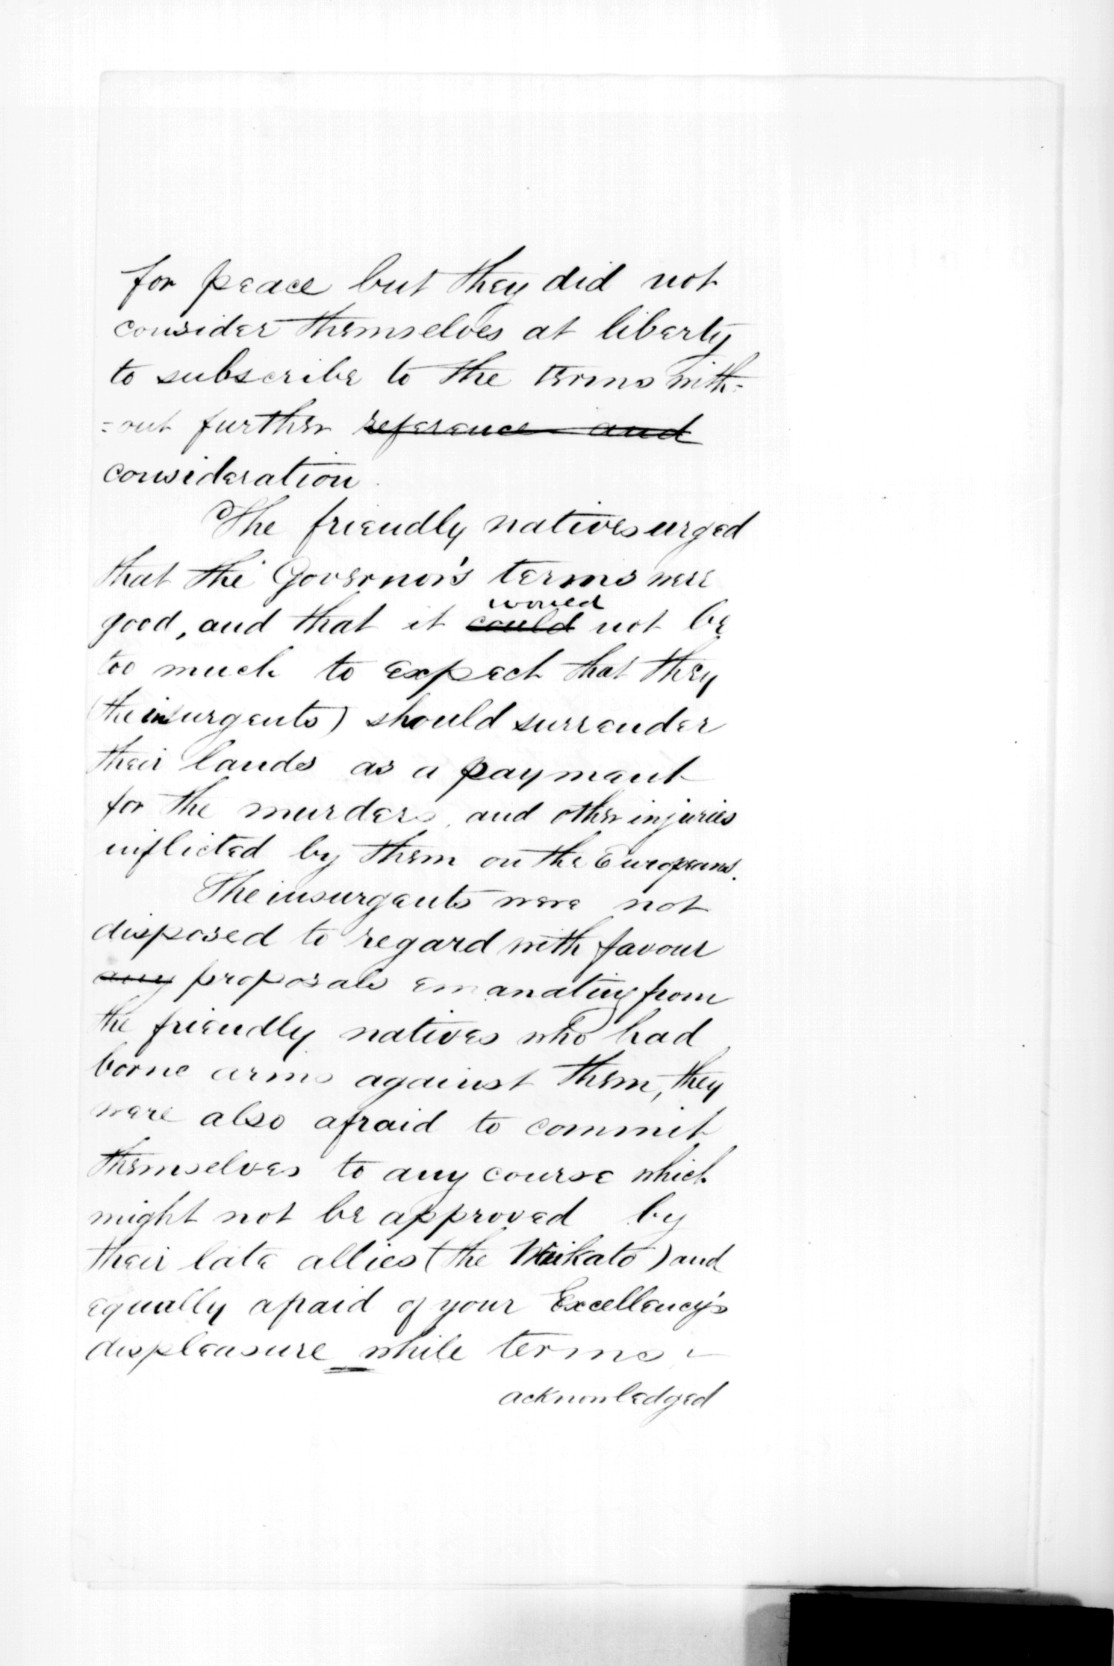 for peace but they did not
consider themselves at liberty
to subscribe to the terms with-
=out further reference and
consideration.
The friendly natives urged
that the Governor's terms were
good, and that it could would not be
too much to expect that they
(the insurgents) should surrender
their lands as a payment
for the murders, and other injuries
inflicted by them on the Europeans.
The insurgents were not
disposed to regard with favour
any proposals emanating from
the friendly natives who had
borne arms against them, they
were also afraid to commit
themselves to any course which
might not be approved by
their late allies (the Waikato) and
equally afraid of your Excellency's
displeasure while terms -
acknowledged